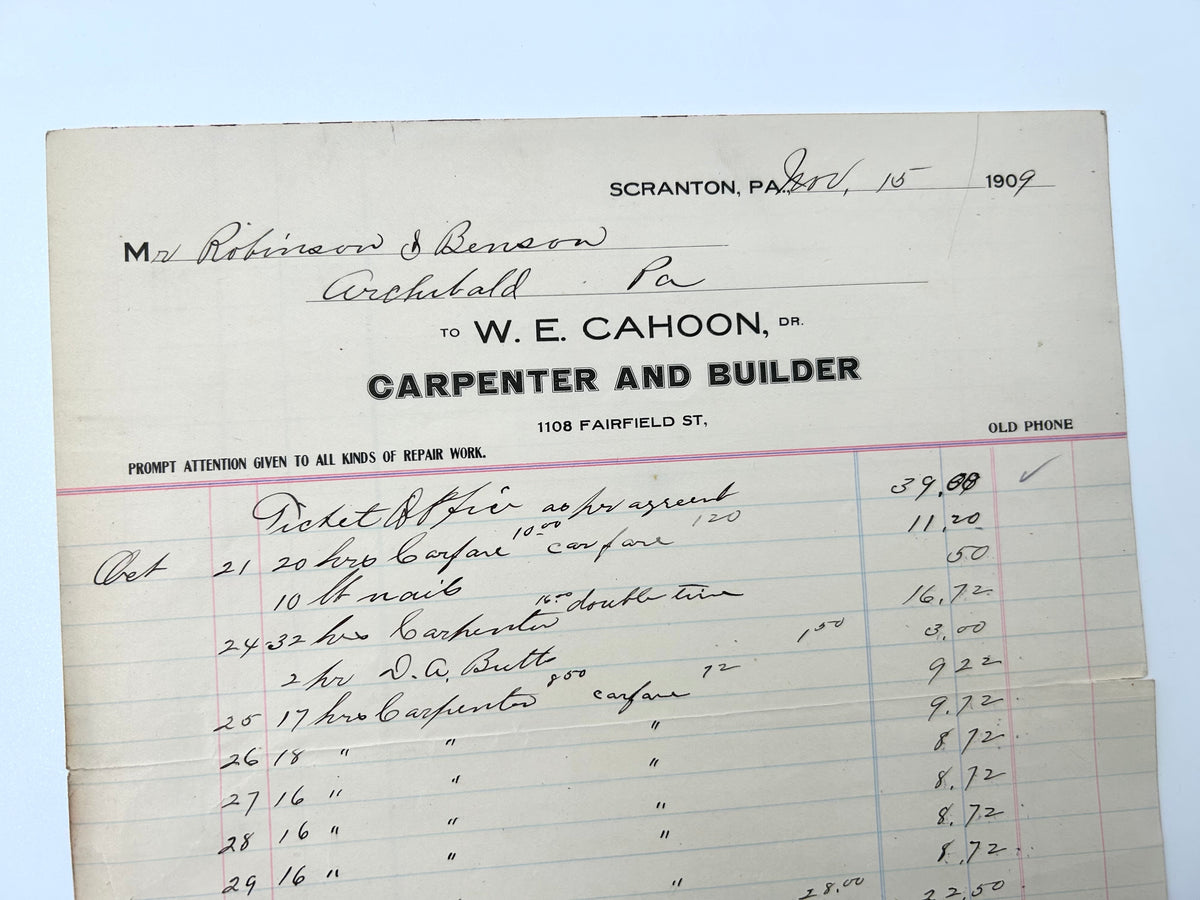 SCRANTON, PA., Nov. 15 1909
Mr Robinson & Benson
Archibald Pa
TO W. E. CAHOON, DR.
CARPENTER AND BUILDER
1108 FAIRFIELD ST,
OLD PHONE
PROMPT ATTENTION GIVEN TO ALL KINDS OF REPAIR WORK.
Ticket Office as pr agreent 39.00
Oct 21 20 hrs Carfare 10.00 carfare 120 11.20
10 lb nails 50
24 32 hrs Carpenter 16.00 double time 16.72
2 hr D. A. Butts 1,50 3.00
25 17 hrs Carpenter 8 50 carfare 72 9 22
26 18 " " " 9.72
27 16 " " " 8.72
28 16 " " " 8.72
29 16 " " " 8.72
8.72
" 28.00 22.50